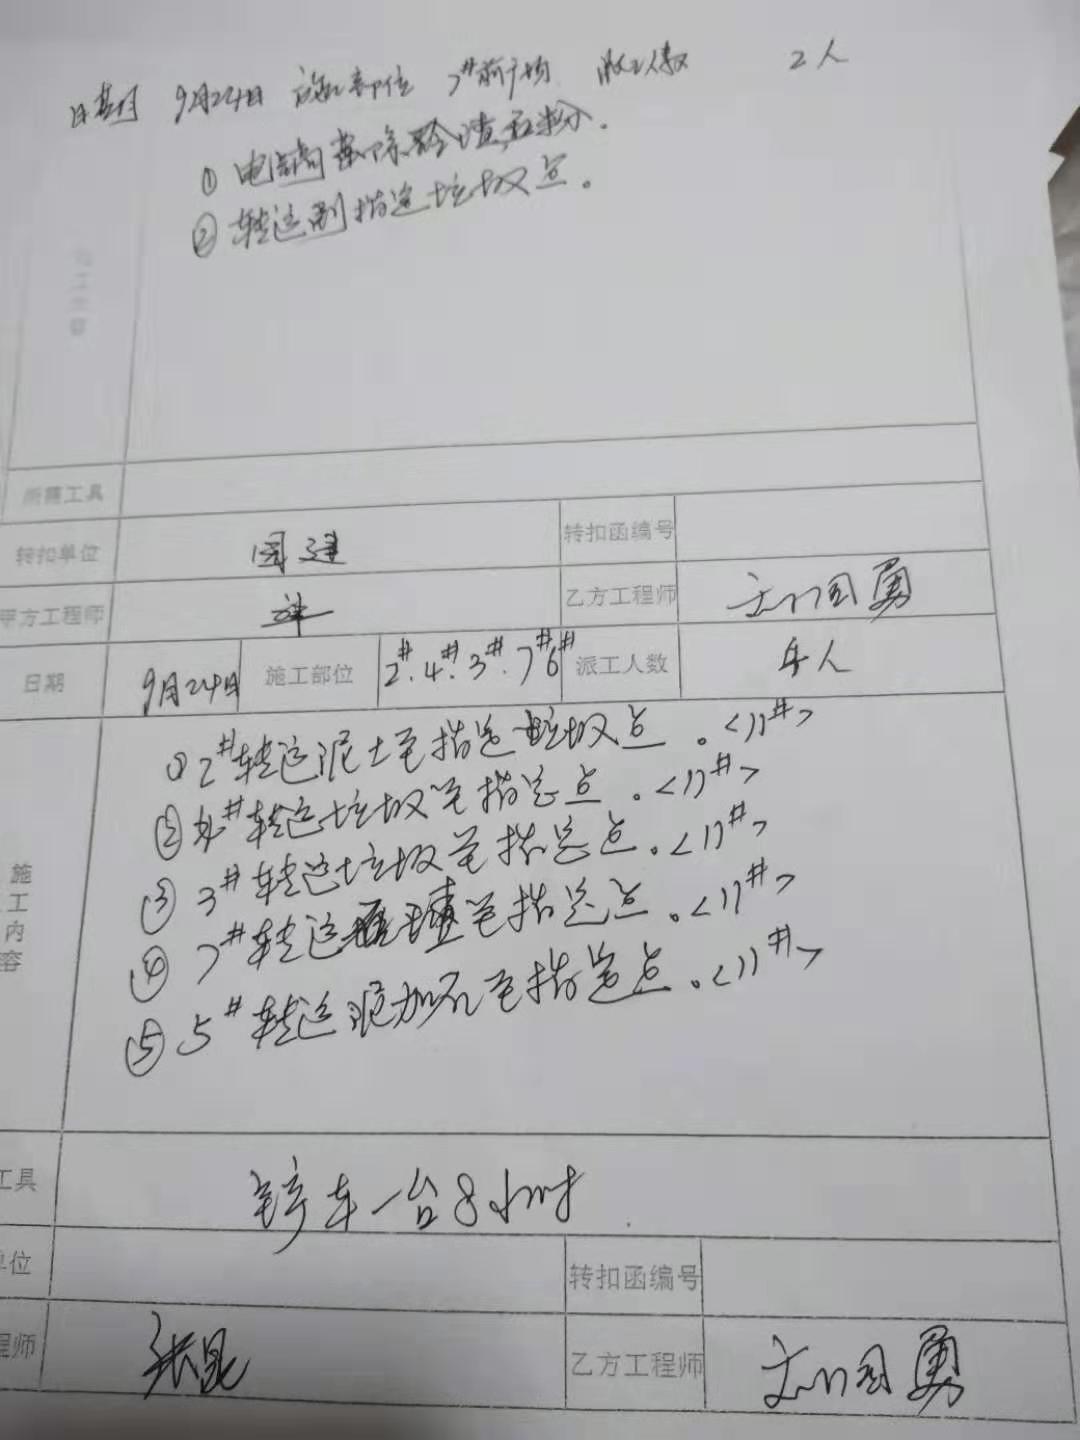 日期 9月24日 施工部位 7#前广场 派工人数 2人
① 电镐凿除砼渣、石粉.
② 转运到指定垃圾点。
施工内容
所需工具
转扣单位 国建 转扣函编号
甲方工程师 乙方工程师 刘国勇
日期 9月24日 施工部位 2#.4#.3#.7#6# 派工人数 车人
① 2#转运泥土至指定垃圾点。<11#>
② 4#转运垃圾至指定点.<11#>
施工内容
③ 3#转运垃圾至指定点。<11#>
④ 7#转运渣至指定点。<11#>
⑤ 5#转运 至指定点。<11#>
工具 铲车一台8小时
单位 转扣函编号
程师 张昆 乙方工程师 刘国勇